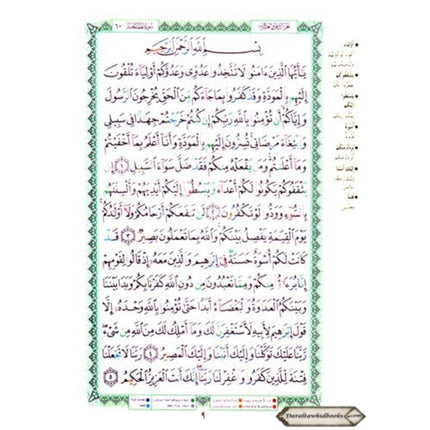 ٦٠
بِسْمِ ٱللَّهِ ٱلرَّحْمَٰنِ ٱلرَّحِيمِ
يَٰٓأَيُّهَا ٱلَّذِينَ ءَامَنُوا۟ لَا تَتَّخِذُوا۟ عَدُوِّى وَعَدُوَّكُمْ أَوْلِيَآءَ تُلْقُونَ
إِلَيْهِم بِٱلْمَوَدَّةِ وَقَدْ كَفَرُوا۟ بِمَا جَآءَكُم مِّنَ ٱلْحَقِّ يُخْرِجُونَ ٱلرَّسُولَ
وَإِيَّاكُمْ أَن تُؤْمِنُوا۟ بِٱللَّهِ رَبِّكُمْ إِن كُنتُمْ خَرَجْتُمْ جِهَٰدًا فِى سَبِيلِى
وَٱبْتِغَآءَ مَرْضَاتِى تُسِرُّونَ إِلَيْهِم بِٱلْمَوَدَّةِ وَأَنَا۠ أَعْلَمُ بِمَآ أَخْفَيْتُمْ
وَمَآ أَعْلَنتُمْ وَمَن يَفْعَلْهُ مِنكُمْ فَقَدْ ضَلَّ سَوَآءَ ٱلسَّبِيلِ ١ إِن
يَثْقَفُوكُمْ يَكُونُوا۟ لَكُمْ أَعْدَآءً وَيَبْسُطُوٓا۟ إِلَيْكُمْ أَيْدِيَهُمْ وَأَلْسِنَتَهُم
بِٱلسُّوٓءِ وَوَدُّوا۟ لَوْ تَكْفُرُونَ ٢ لَن تَنفَعَكُمْ أَرْحَامُكُمْ وَلَآ أَوْلَٰدُكُمْ
يَوْمَ ٱلْقِيَٰمَةِ يَفْصِلُ بَيْنَكُمْ وَٱللَّهُ بِمَا تَعْمَلُونَ بَصِيرٌ ٣ قَدْ
كَانَتْ لَكُمْ أُسْوَةٌ حَسَنَةٌ فِىٓ إِبْرَٰهِيمَ وَٱلَّذِينَ مَعَهُۥٓ إِذْ قَالُوا۟ لِقَوْمِهِمْ
إِنَّا بُرَءَٰٓؤُا۟ مِنكُمْ وَمِمَّا تَعْبُدُونَ مِن دُونِ ٱللَّهِ كَفَرْنَا بِكُمْ وَبَدَا بَيْنَنَا
وَبَيْنَكُمُ ٱلْعَدَٰوَةُ وَٱلْبَغْضَآءُ أَبَدًا حَتَّىٰ تُؤْمِنُوا۟ بِٱللَّهِ وَحْدَهُۥٓ إِلَّا
قَوْلَ إِبْرَٰهِيمَ لِأَبِيهِ لَأَسْتَغْفِرَنَّ لَكَ وَمَآ أَمْلِكُ لَكَ مِنَ ٱللَّهِ مِن شَىْءٍ
رَّبَّنَا عَلَيْكَ تَوَكَّلْنَا وَإِلَيْكَ أَنَبْنَا وَإِلَيْكَ ٱلْمَصِيرُ ٤ رَبَّنَا لَا تَجْعَلْنَا
فِتْنَةً لِّلَّذِينَ كَفَرُوا۟ وَٱغْفِرْ لَنَا رَبَّنَآ إِنَّكَ أَنتَ ٱلْعَزِيزُ ٱلْحَكِيمُ ٥
٩
Daraltawhidbooks.com